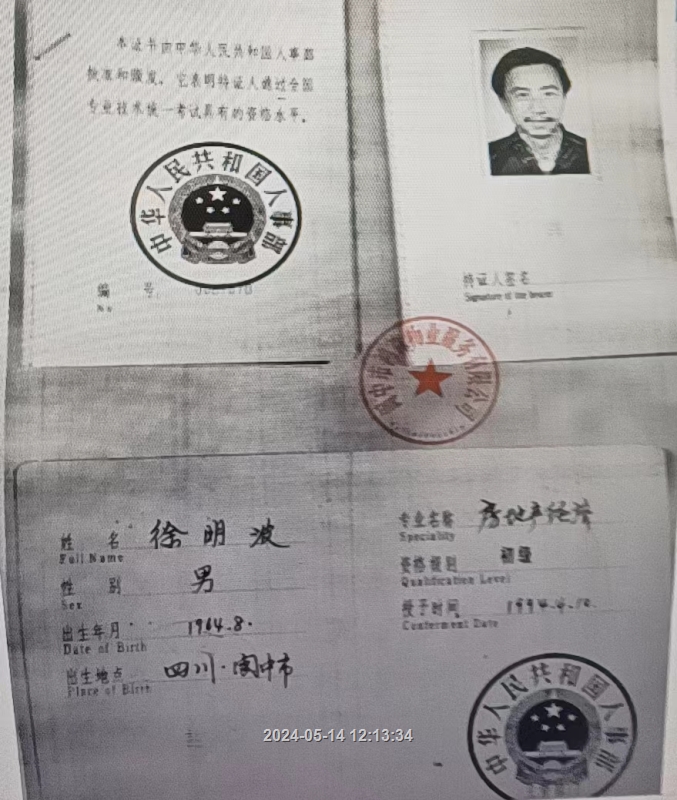 本证书由中华人民共和国人事部
批准和颁发。它表明持证人通过全国
专业技术统一考试具有的资格水平。
中华人民共和国人事部
编 号
No
持证人签名
Signature of the bearer
物业服务有限公司
姓 名 徐明波
Full Name
性 别 男
Sex
出生年月 1964.8.
Date of Birth
出生地点 四川·阆中市
Place of Birth
专业名称 房地产经济
Speciality
资格级别 初级
Qualification Level
授予时间 1994.4.10.
Conferment Date
中华人民共和国人事部
2024-05-14 12:13:34